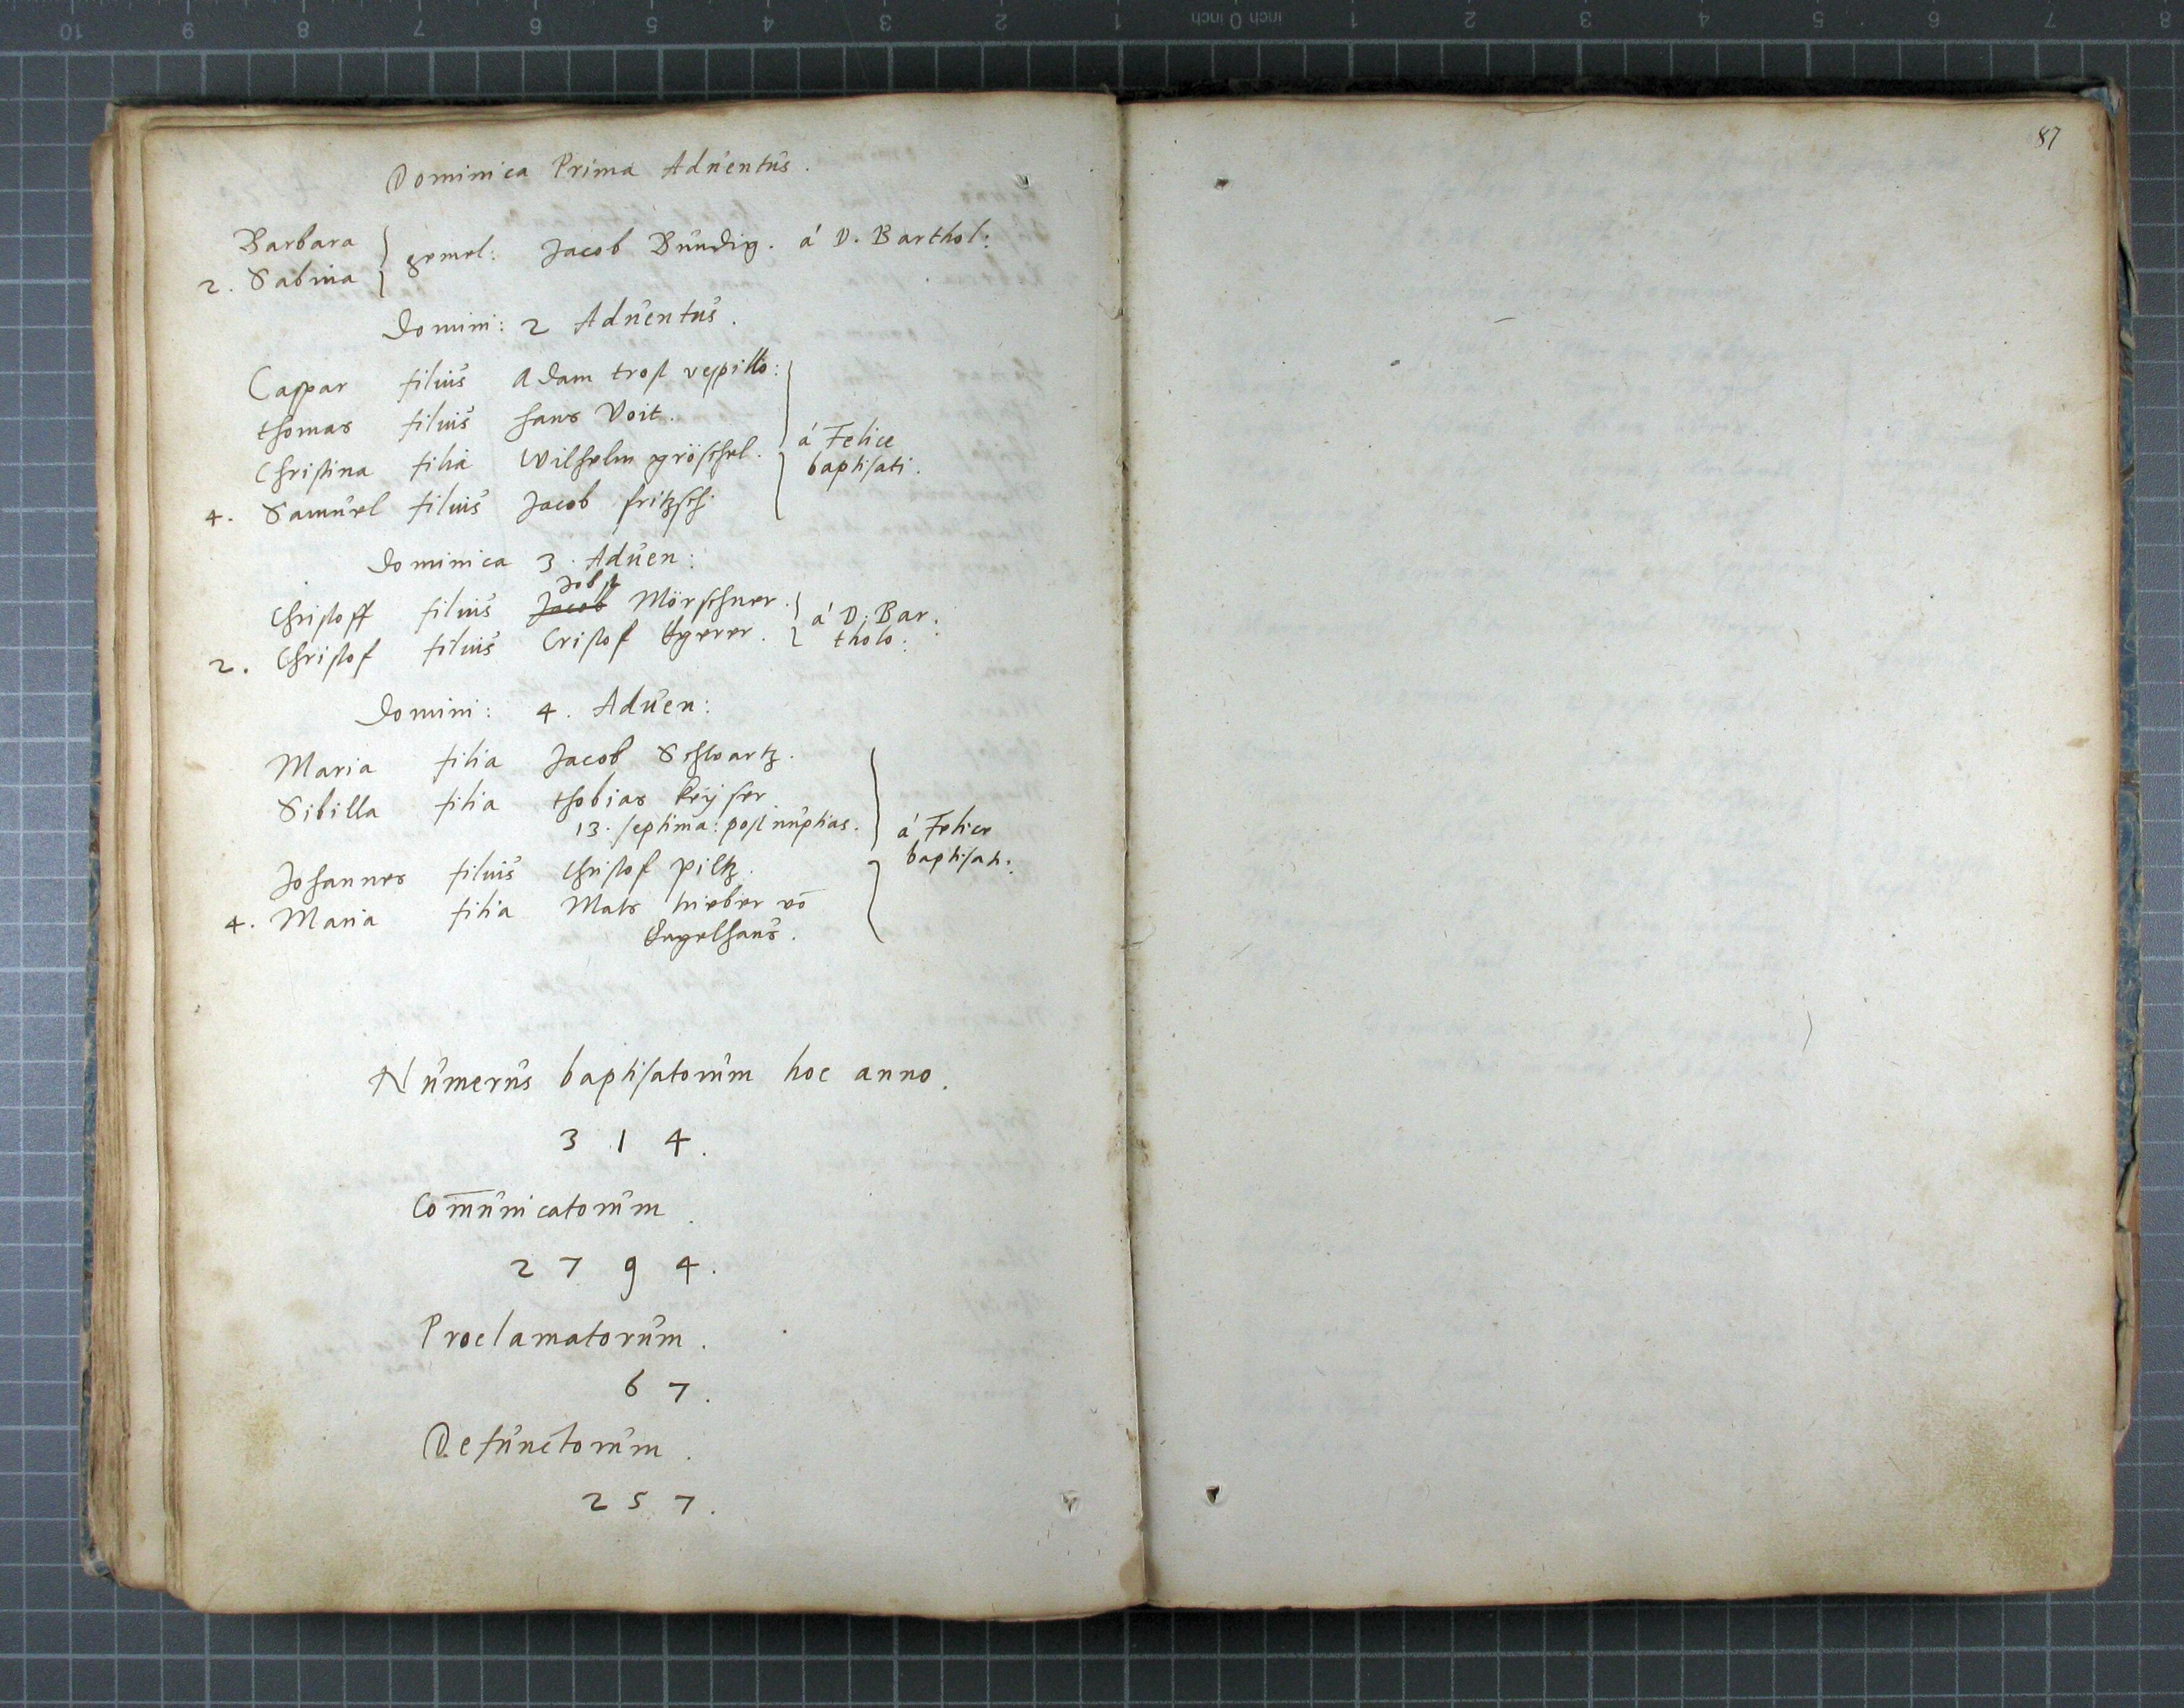 Dominica Prima Aduentus.
Barbara
gemel: Jacob Bundig. á D. Barthol:
2. Sabina
Domini: 2 Aduentus.
Caspar filius Adam trost vespillo:
thomas filius hans Voit.
á Felice
Christina filia Wilhelm gröschel.
baptisati.
4. Samuel filius Jacob fritzsch
Dominica 3. Aduen:
Jobst
Christoff filius Jacob Mörschner.
á D. Bar:
2. Christof filius Cristof
tholo:
Domini: 4. Aduen:
Maria filia Jacob Schwartz.
Sibilla filia thobias keyser
13. septima: post nuptias.
á Felice
baptisati.
Johannes filius Christof piltz.
4. Maria filia Mats vō
Engelhaus.
Numerus baptisatorum hoc anno.
3 1 4.
Com̄unicatorum.
2 7 9 4.
Proclamatorum.
6 7.
Defunctorum.
2 5 7.
87
10 9 8 7 6 5 4 3 2 1 inch 0 inch 1 2 3 4 5 6 7 8